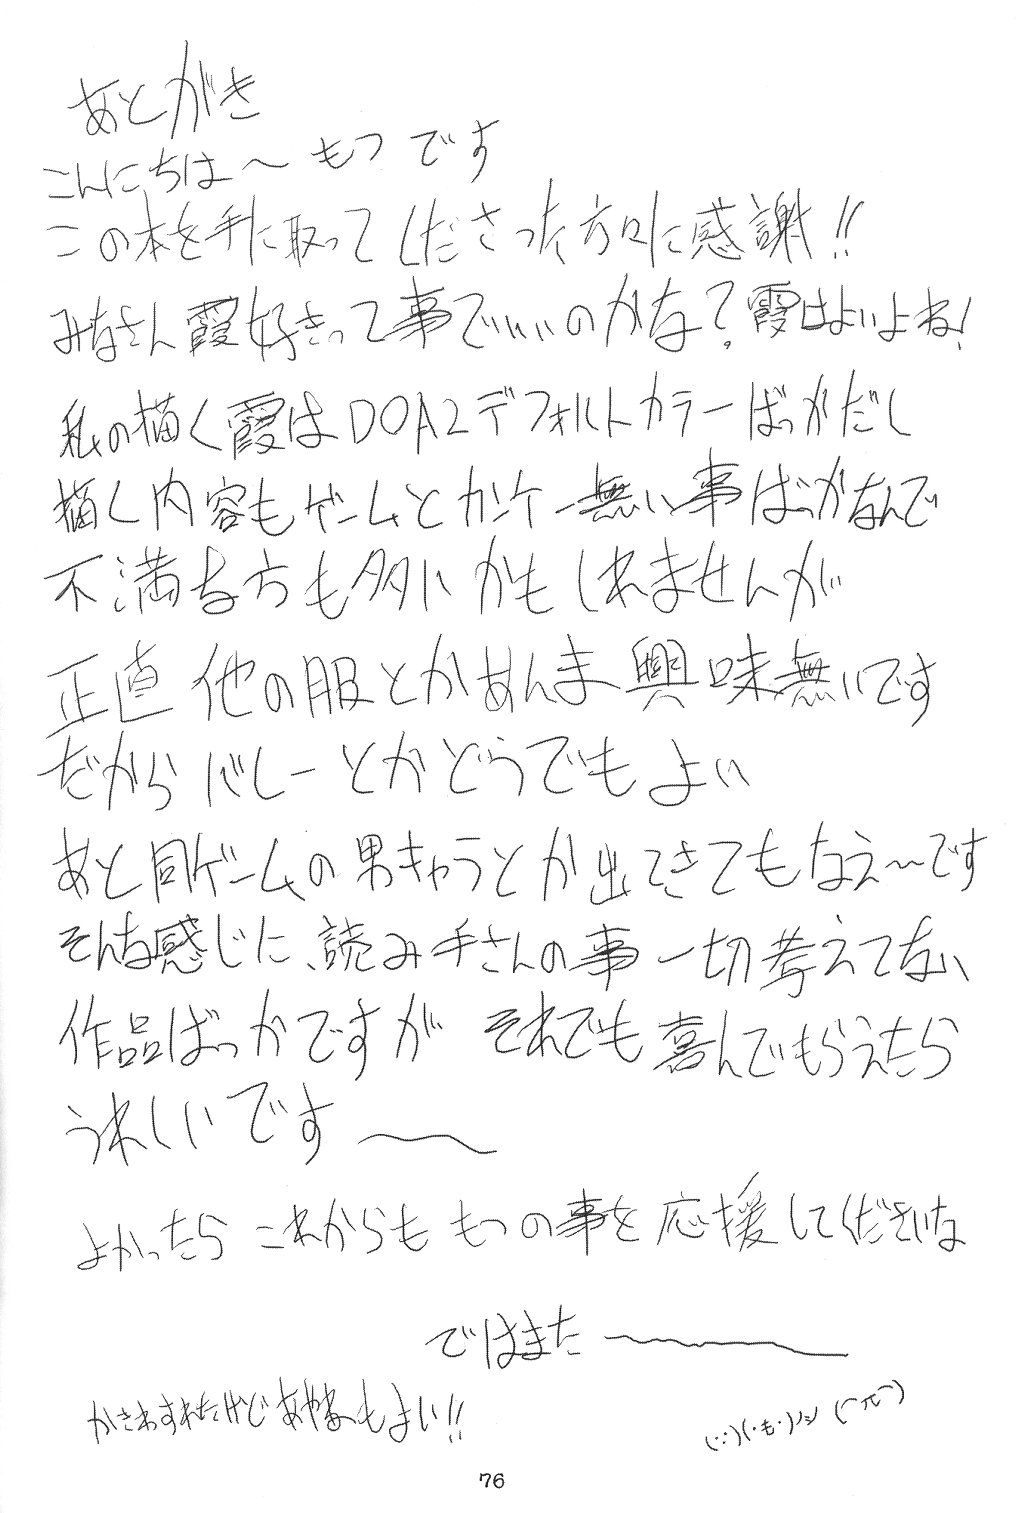 あとがき
こんにちは〜 もつ です
この本を手に取ってくださった方々に感謝!!
みなさん霞好きって事でいいのかな?霞はよいよね!
私の描く霞はDOA2デフォルトカラーばっかだし
描く内容もゲームとカンケー無い事ばっかなんで
不満な方も多いかもしれませんが
正直 他の服とかあんま興味無いです
だから バレーとかどうでもよい
あと同ゲームの男キャラとか出てきてもなえ〜です
そんな感じに、読み手さんの事一切考えてない
作品ばっかですが それでも喜んでもらえたら
うれしいです〜
よかったら これからも もつの事を応援してくださいな
ではまた〜
かきわすれたけど あやねもよい!!
76